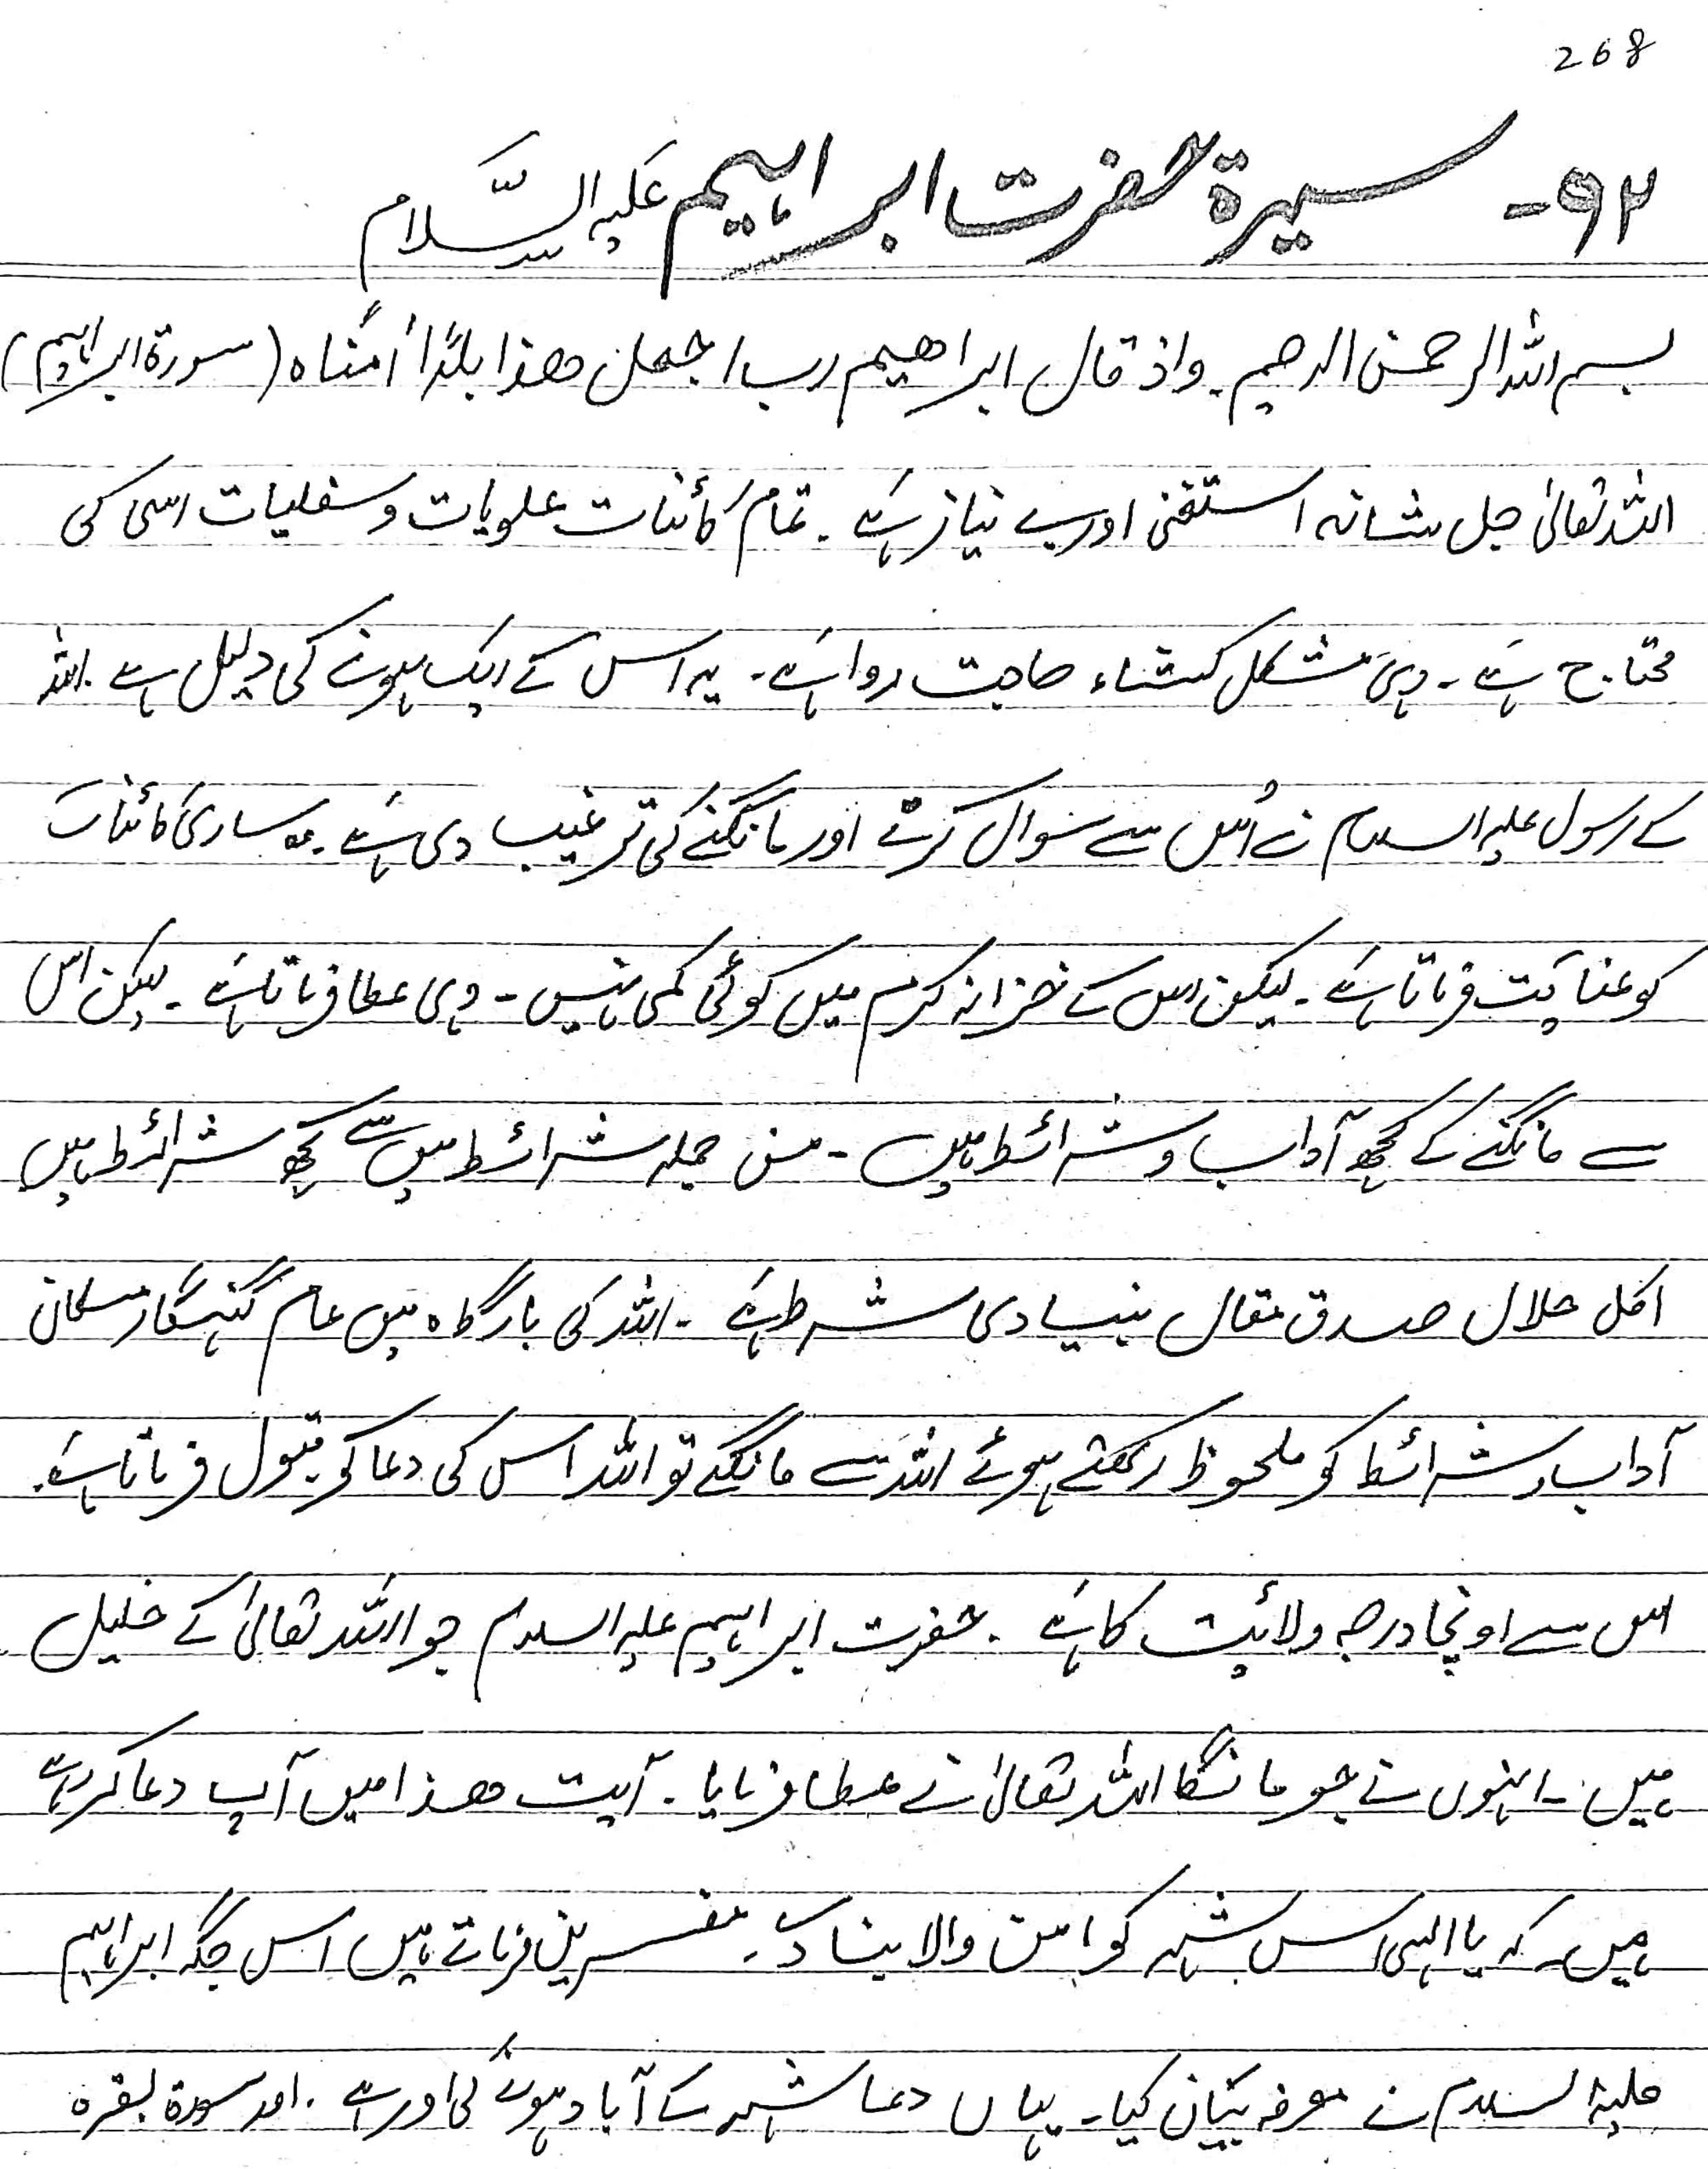 268
۹۲- سیرۃ حضرت ابراہیم عَلَیہِ السَّلام
بسم اللہ الرحمن الرحیم۔ واذ قال ابراھیم رب اجعل ھذا بلدًا اٰمنًاہ (سورۃ ابراہیم)
اللہ تعالیٰ جل شانہ استغنی اور بے نیاز ہے۔ تمام کائنات علویات و سفلیات اسی کی
محتاج ہے۔ وہی مشکل کشاء حاجت روا ہے۔ یہ اس کے ایک ہونے کی دلیل ہے۔ اللہ
کے رسول علیہ السلام نے اُس سے سوال کرنے اور مانگنے کی ترغیب دی ہے۔ وہ ساری کائنات
کو عنایت فرماتا ہے۔ لیکن اس کے خزانہ کرم میں کوئی کمی نہیں۔ وہی عطا فرماتا ہے۔ لیکن اس
سے مانگنے کے کچھ آداب و شرائط ہیں۔ من جملہ شرائط میں سے کچھ شرائط ہیں
اکل حلال صدق مقال بنیادی شرط ہے۔ اللہ کی بارگاہ میں عام گنہگار مسلمان
آداب و شرائط کو ملحوظ رکھتے ہوئے اللہ سے مانگے تو اللہ اس کی دعا کو قبول فرماتا ہے۔
اس سے اونچا درجہ ولائیت کا ہے۔ حضرت ابراہیم علیہ السلام جو اللہ تعالیٰ کے خلیل
ہیں۔ انہوں نے جو مانگا اللہ تعالیٰ نے عطا فرمایا۔ آیت ھذا میں آپ دعا کر رہے
ہیں۔ کہ یا الہی اس شہر کو امن والا بنا دے۔ مفسرین فرماتے ہیں اس جگہ ابراہیم
علیہ السلام نے معرفہ بیان کیا۔ یہاں دعا شہر کے آباد ہونے کی اور ہے۔ اور سورۃ بقرہ